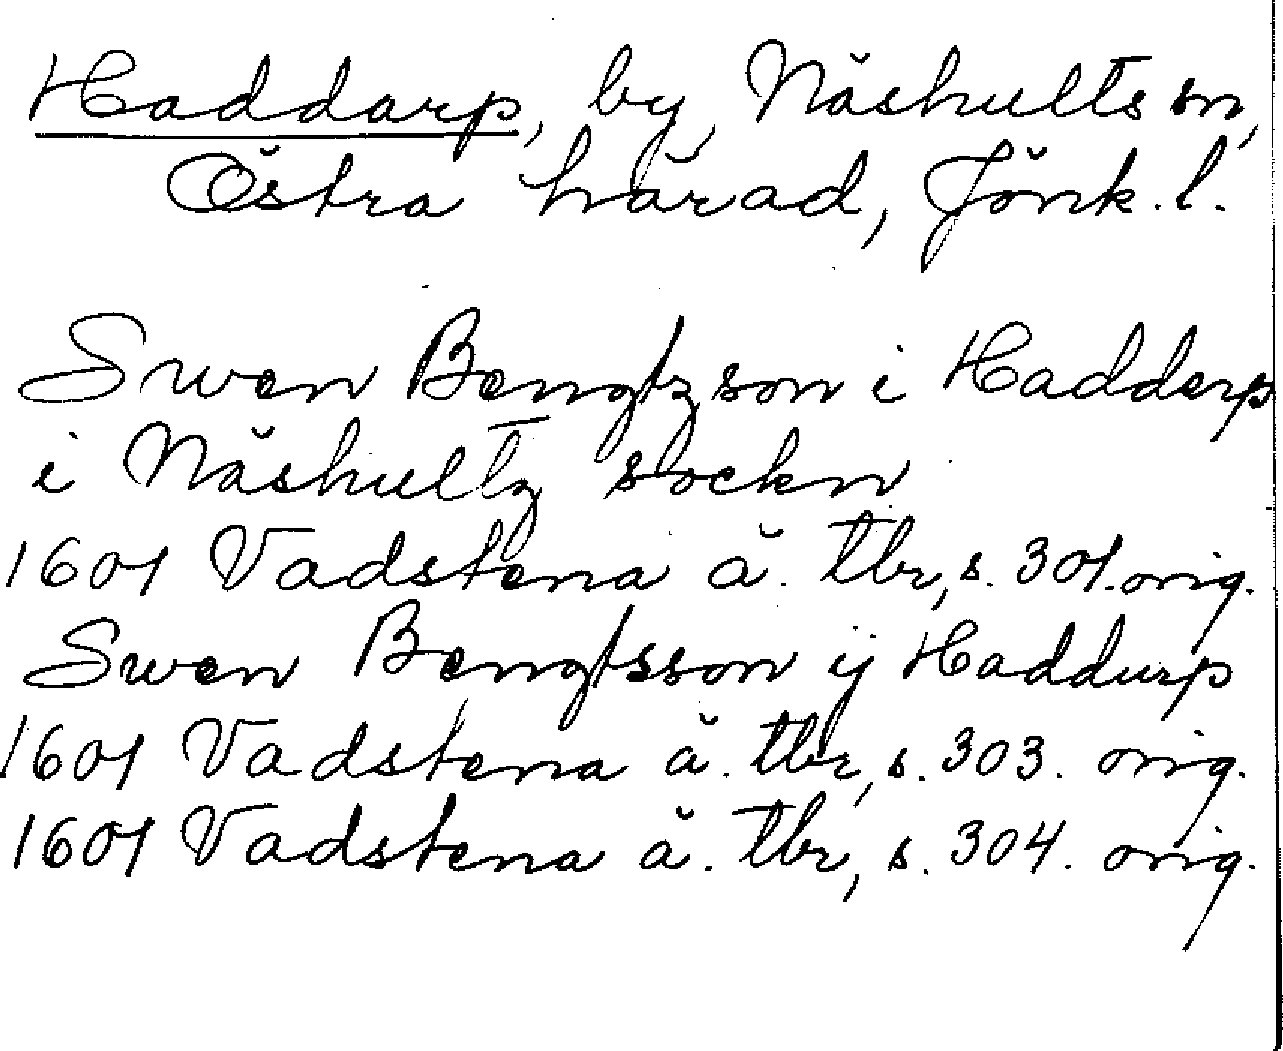 Haddarp, by, Näshults sn,
Östra härad, Jönk. l.
Swen Bengtzson i Hadderp
i Näshultz sockn
1601 Vadstena ä. tbr, s. 301. orig.
Swen Bengtsson ij Haddurp
1601 Vadstena ä. tbr, s. 303. orig.
1601 Vadstena ä. tbr, s. 304. orig.